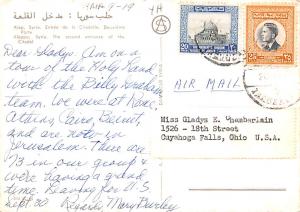 حلب سوريا: مدخل القلعة
Alep, Syrie, Entrée de la Citadelle, Deuxième Porte
Aleppo, Syria, The second entrance of the Citadel
Dear Gladys, Am on a
tour of the Holy Land
with the Billy Graham
team. We were at Rome,
Athens, Cairo, Beirut,
and are now in
Jerusalem. There are
73 in our group &
were having a grand
time. Leaving for U.S.
Sept 30 Regards, Mary Burley
AIR MAIL
Miss Gladys E. Chamberlain
1526 - 18th Street
Cuyahoga Falls, Ohio U.S.A.